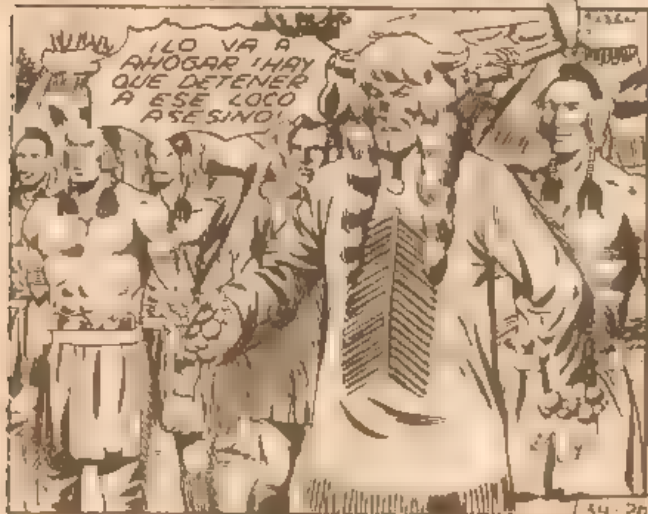 ¡LO VA A
AHOGAR! ¡HAY
QUE DETENER
A ESE LOCO
ASESINO!